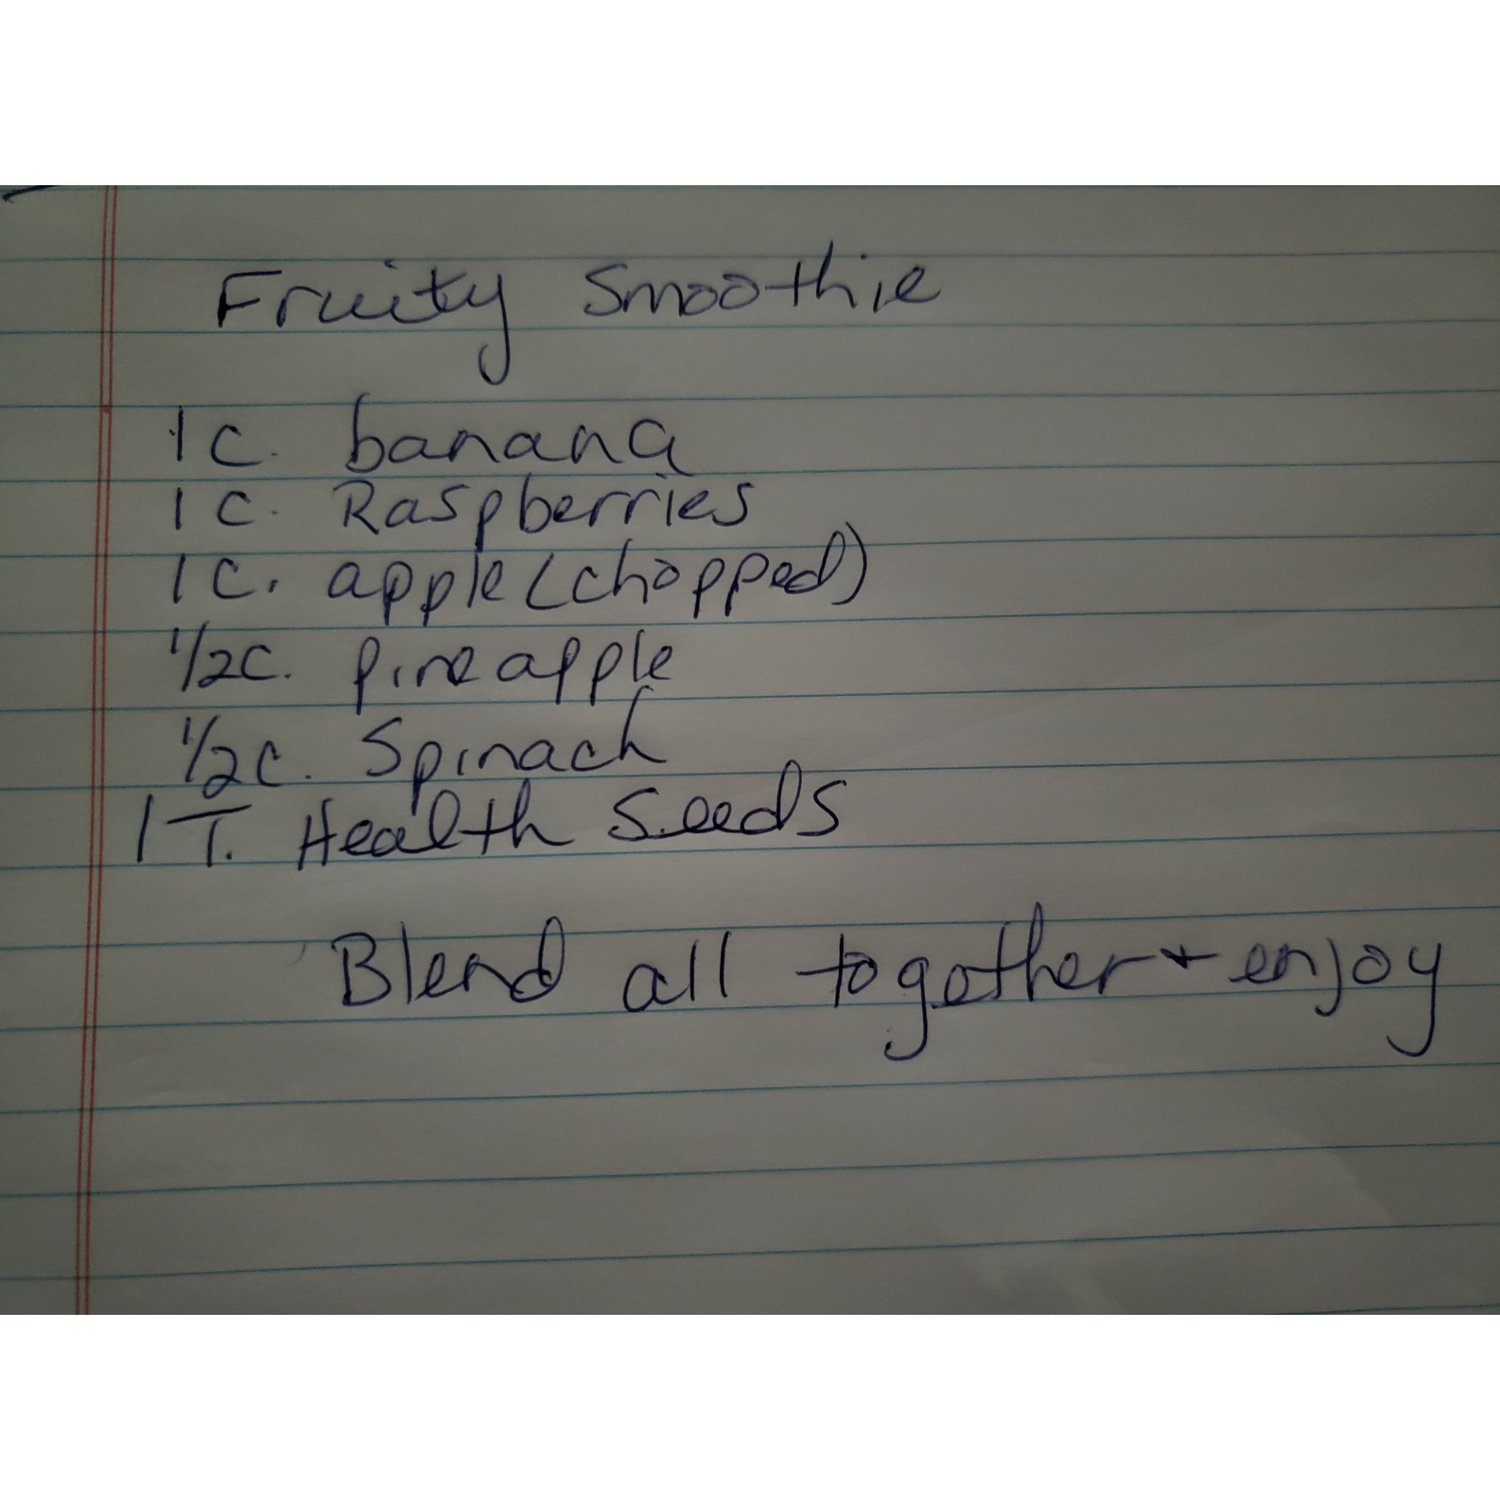 Fruity Smoothie
1 C. banana
1 C. Raspberries
1 C. apple (chopped)
1/2 C. pineapple
1/2 C. Spinach
1 T. Health Seeds
Blend all together + enjoy